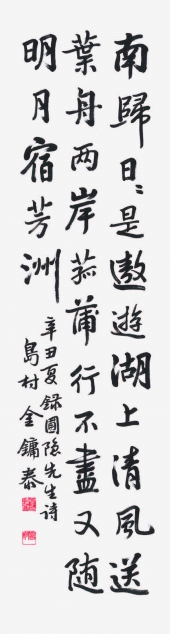 南歸日〻是遨遊湖上清風送
葉舟两岸菰蒲行不盡又随
明月宿芳洲
辛丑夏録圃隐先生诗
島村金鏞泰